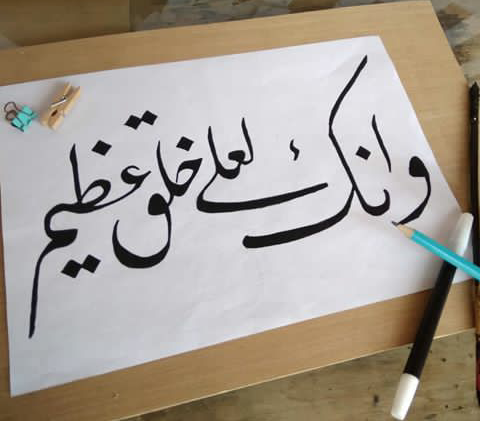 وانك لعلی خلق عظیم